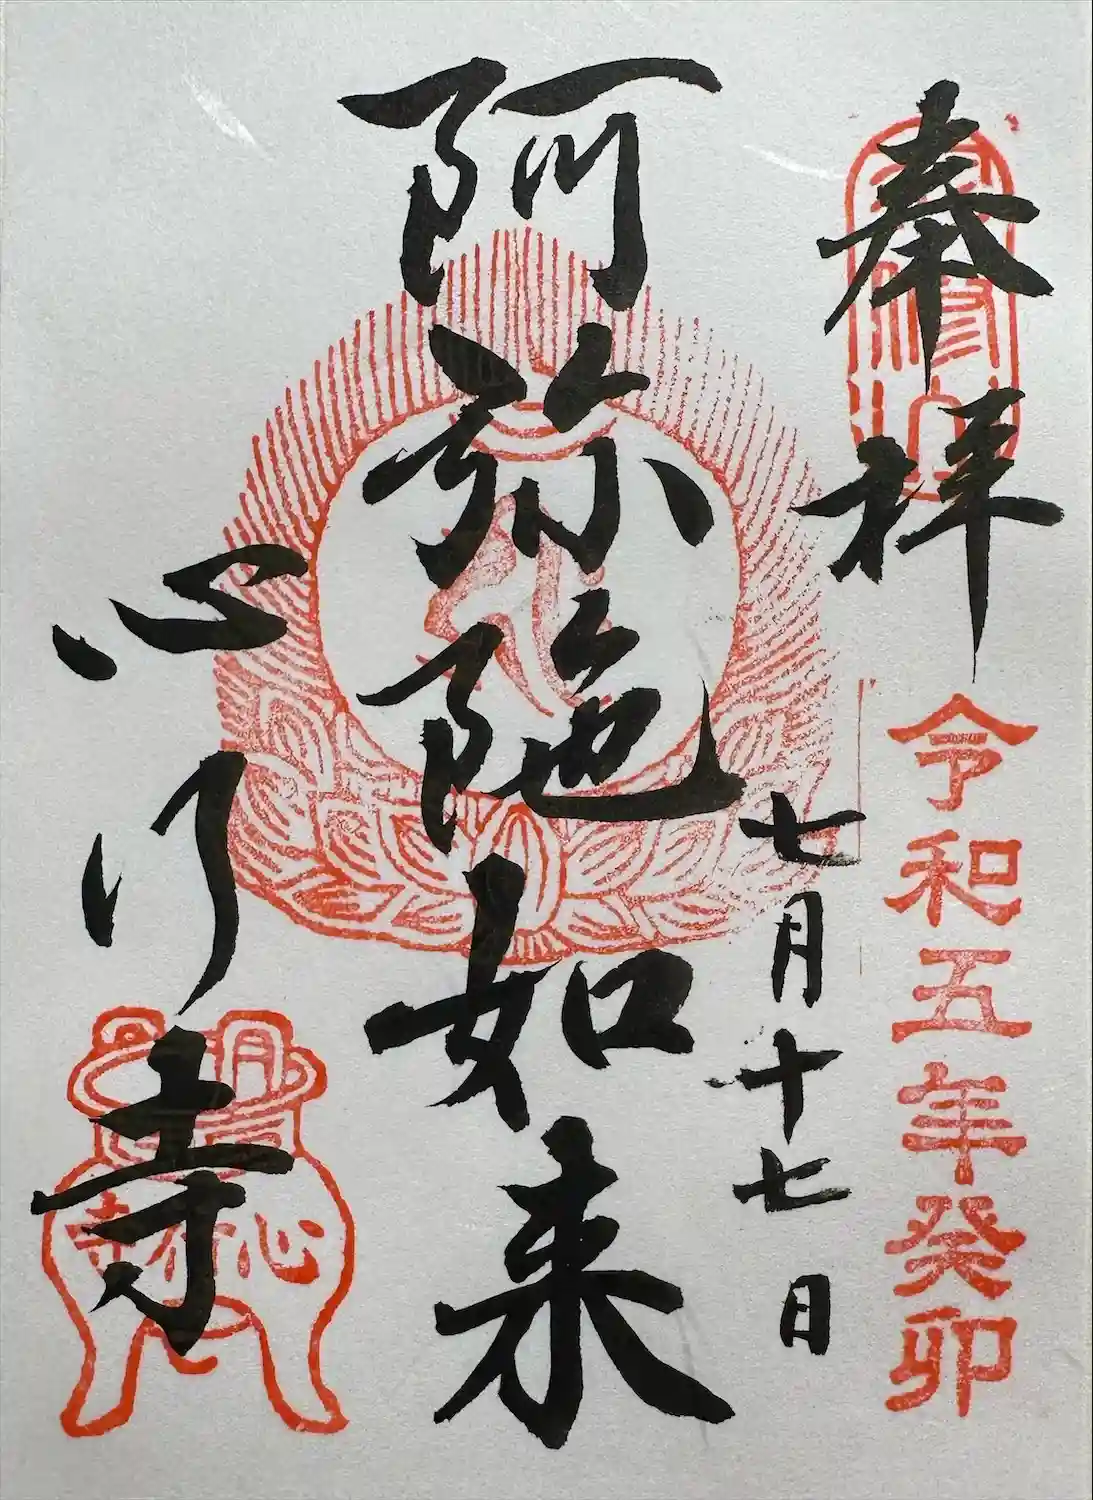 奉拝
令和五年癸卯
七月十七日
阿弥陀如来
心行寺
心行寺